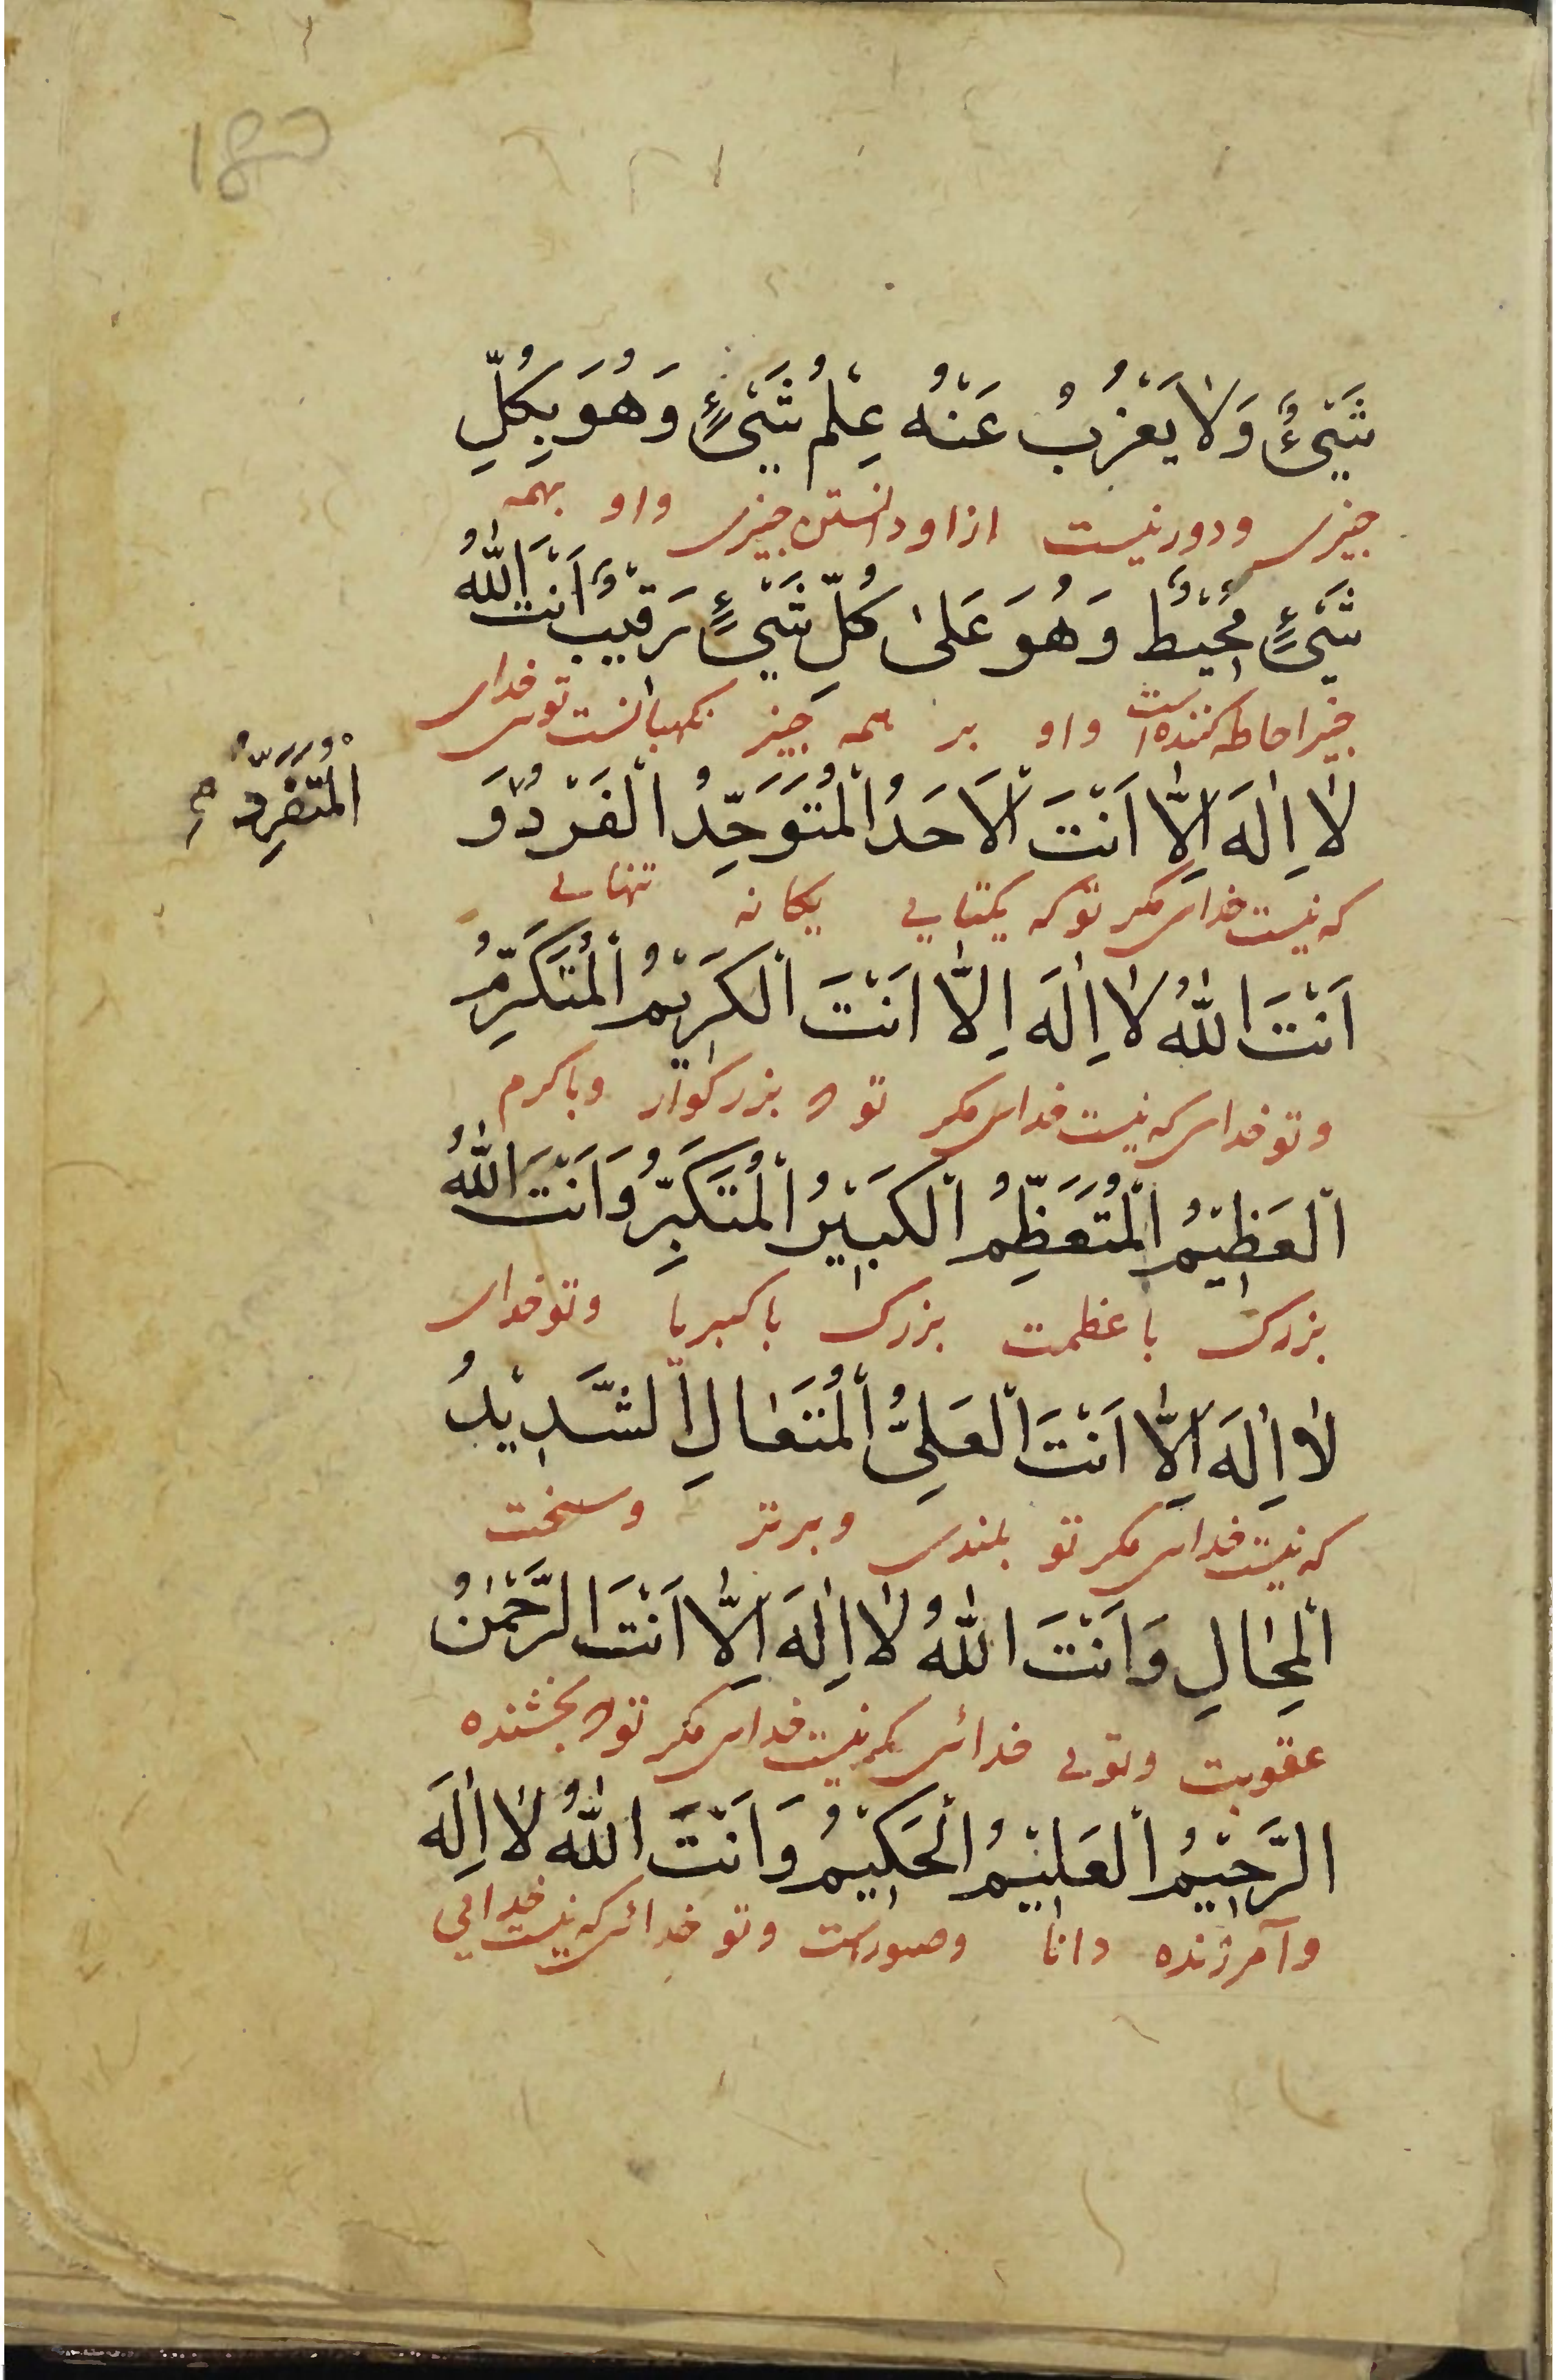 180
شَیْءٌ وَلَا یَعْزُبُ عَنْهُ عِلْمُ شَیْءٍ وَهُوَ بِکُلِّ
چیزی ودور نیست از او دانستن چیزی واو بهمه
شَیْءٍ مُحِیْطٌ وَهُوَ عَلیٰ کُلِّ شَیْءٍ رَقِیْبٌ اَنْتَ اللّٰهُ
چیز احاطه کننده است واو بر همه چیز نکهبانست توی خدای
لَا اِلٰهَ اِلَّا اَنْتَ الْاَحَدُ الْمُتَوَحِّدُ الْفَرْدُ وَ
الْمُتَفَرِّدُ
که نیست خدای مکر تو که یکتایی یکانه تنهایی
اَنْتَ اللّٰهُ لَا اِلٰهَ اِلَّا اَنْتَ الْکَرِیْمُ الْمُتَکَرِّمُ
وتو خدای که نیست خدای مکر تو بزرکوار وباکرم
الْعَظِیْمُ الْمُتَعَظِّمُ الْکَبِیْرُ الْمُتَکَبِّرُ وَاَنْتَ اللّٰهُ
بزرک با عظمت بزرک با کبریا وتو خدای
لَا اِلٰهَ اِلَّا اَنْتَ الْعَلِیُّ الْمُتَعَالِ الشَّدِیْدُ
که نیست خدای مکر تو بلندی وبرتر وسخت
الْمِحَالِ وَاَنْتَ اللّٰهُ لَا اِلٰهَ اِلَّا اَنْتَ الرَّحْمٰنُ
عقوبت وتویی خدائی که نیست خدای مکر تو بخشنده
الرَّحِیْمُ الْعَلِیْمُ الْحَکِیْمُ وَاَنْتَ اللّٰهُ لَا اِلٰهَ
وآمرزنده دانا وتو خدائی که نیست خدایی